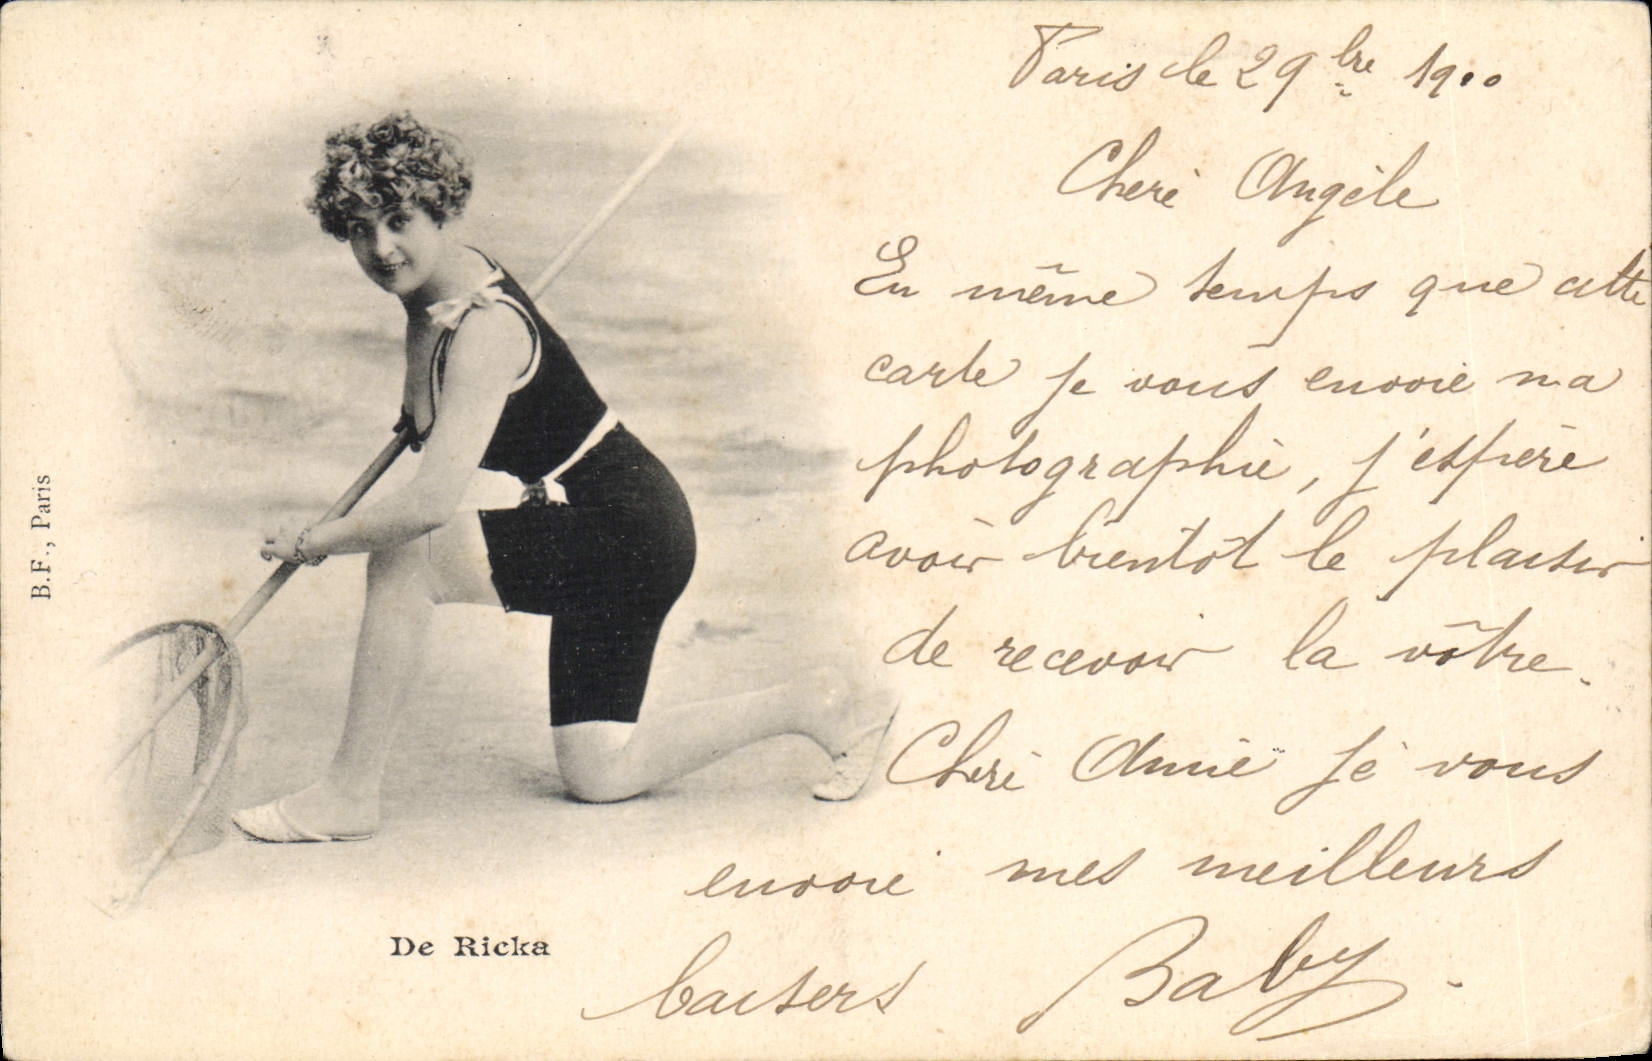 Paris le 29 bre 1900
Cheri Angèle
En même temps que cette
carte je vous envoie ma
photographie, j'espère
avoir bientôt le plaisir
de recevoir la vôtre.
Cheri Amie je vous
envoie mes meilleurs
baisers Baby.
De Ricka
B.F., Paris